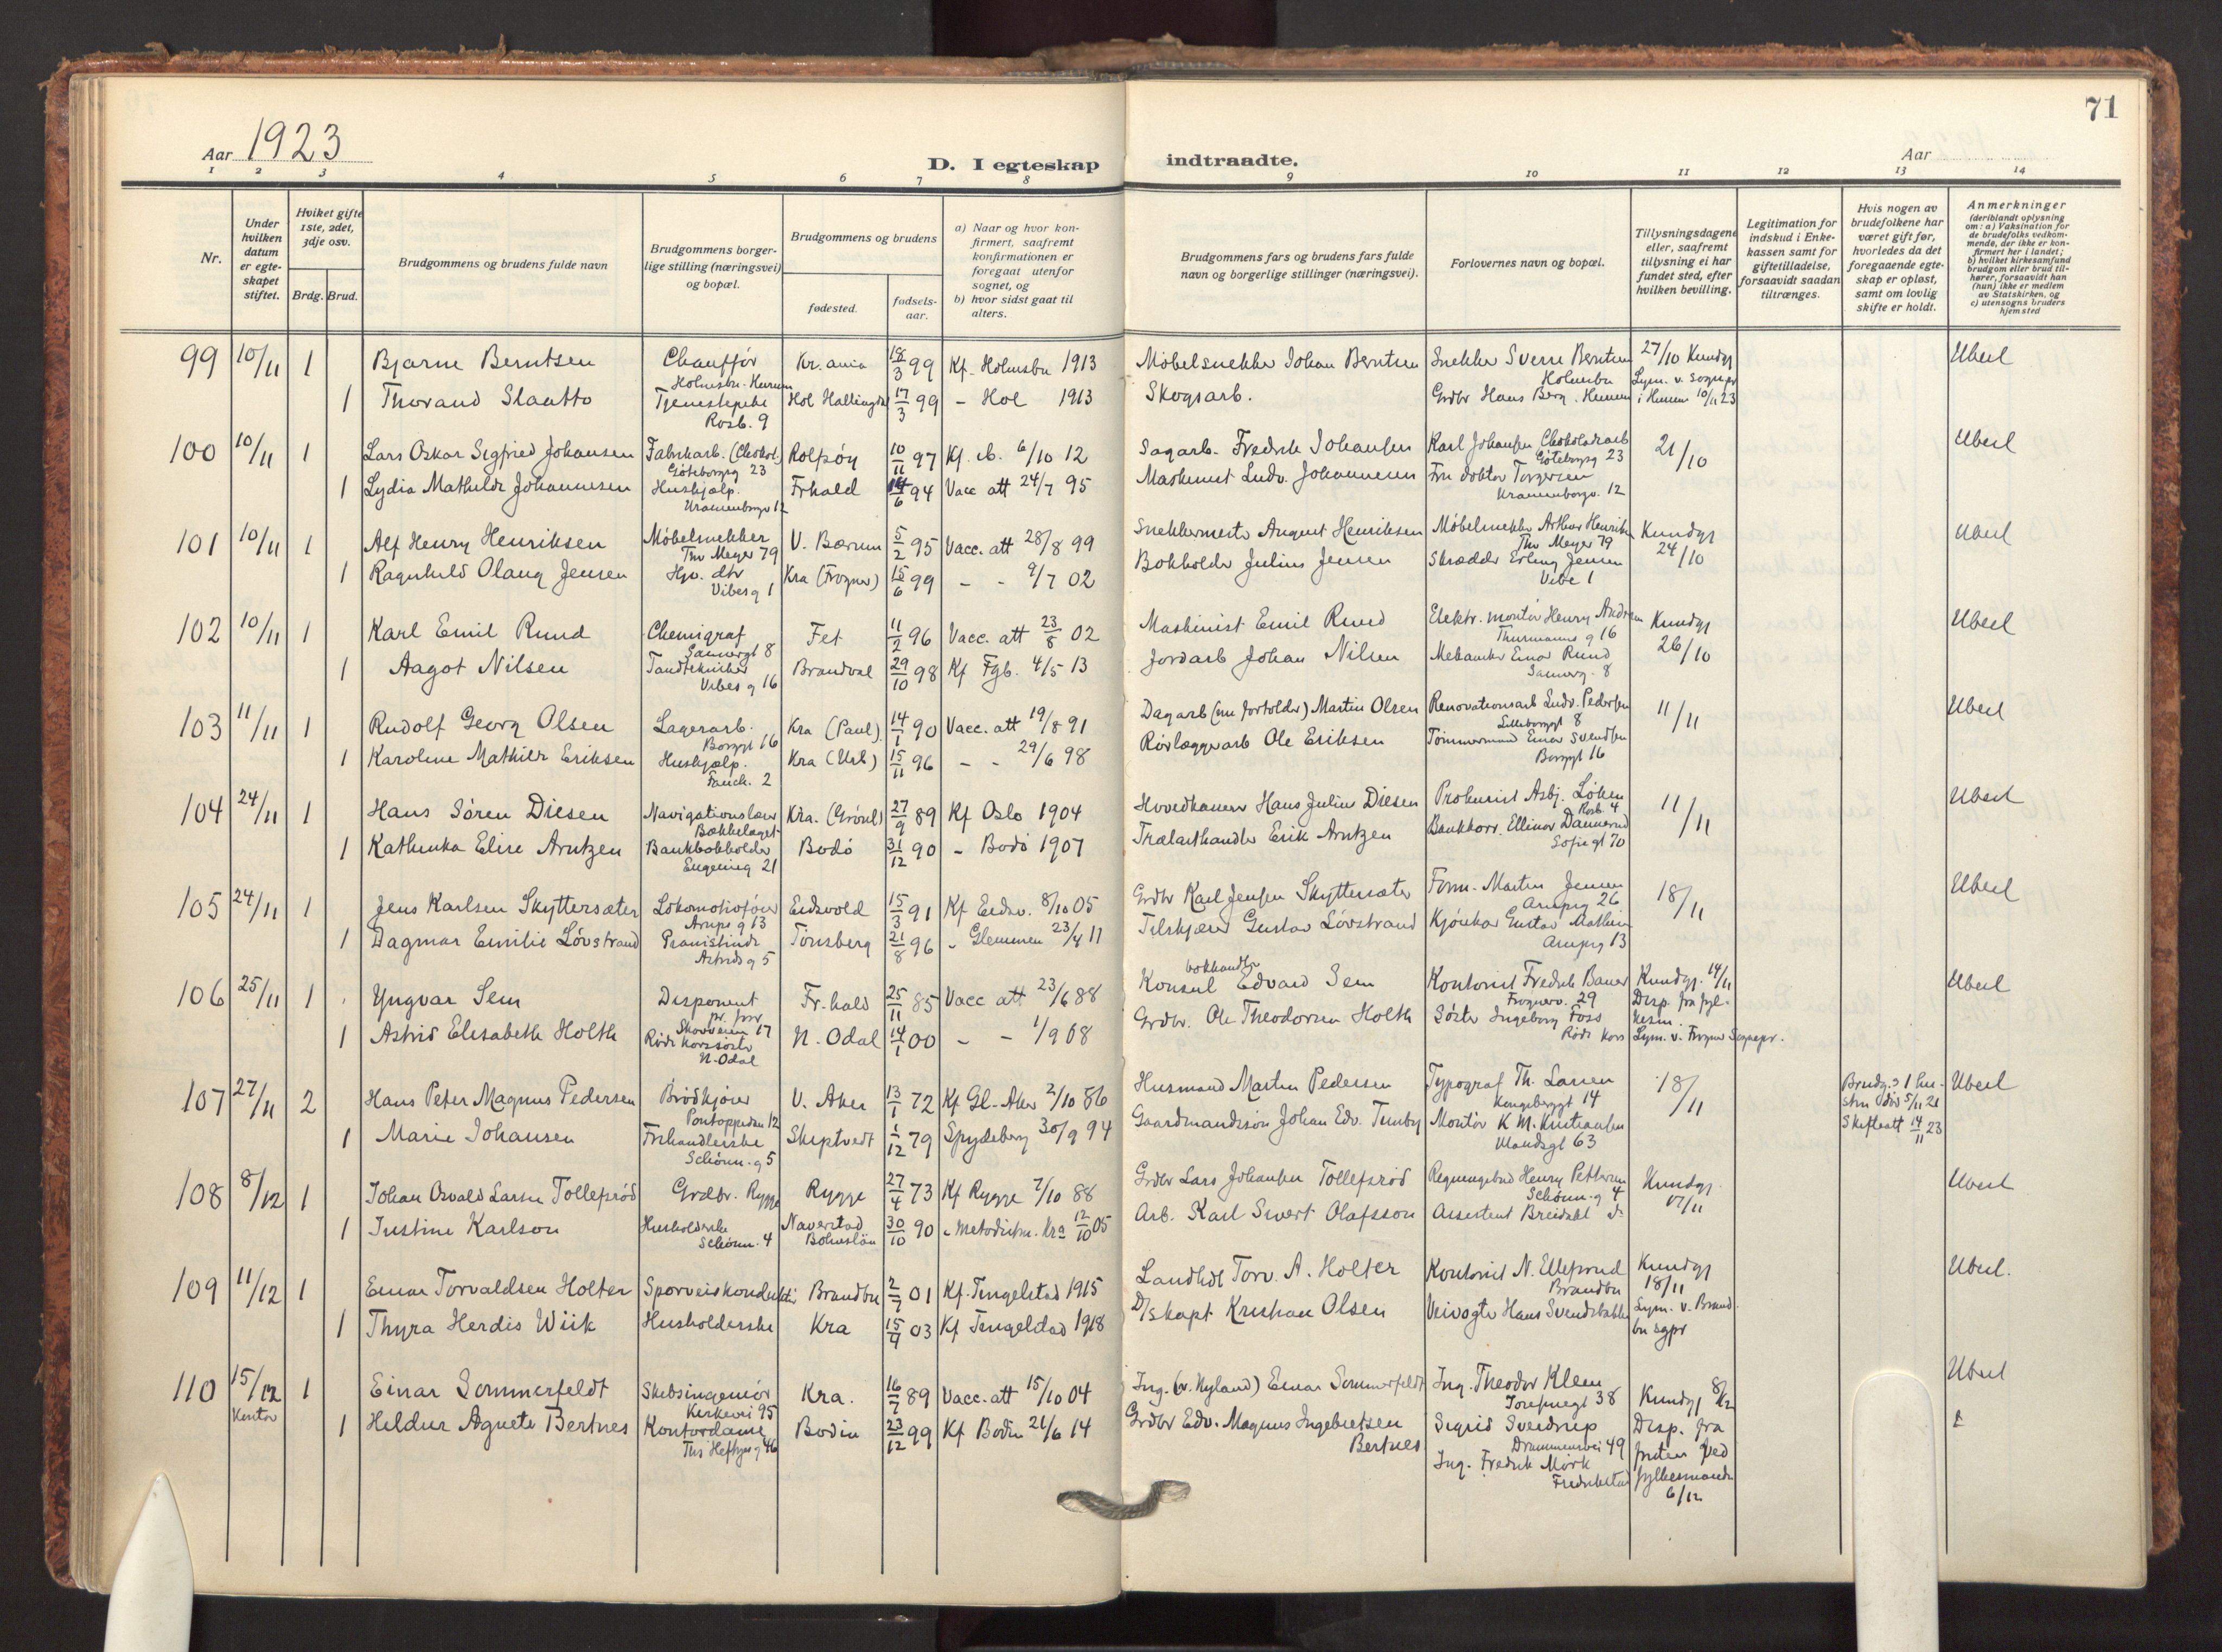 71
Aar 1923
D. I egteskap indtraadte.
Aar
1 2 3 4 5 6 7 8 9 10 11 12 13 14
Nr.
Under hvilken datum er egteskapet stiftet.
Hviket gifte 1ste, 2det, 3dje osv.
Brdg. Brud.
Brudgommens og brudens fulde navn
Brudgommens borgerlige stilling (næringsvei) og bopæl.
Brudgommens og brudens
fødested.
fødselsaar.
a) Naar og hvor konfirmert, saafremt konfirmationen er foregaat utenfor sognet, og
b) hvor sidst gaat til alters.
Brudgommens fars og brudens fars fulde navn og borgerlige stillinger (næringsvei).
Forlovernes navn og bopæl.
Tillysningsdagene eller, saafremt tillysning ei har fundet sted, efter hvilken bevilling.
Legitimation for indskud i Enkekassen samt for giftetilladelse, forsaavidt saadan tiltrænges.
Hvis nogen av brudefolkene har været gift før, hvorledes da det foregaaende egteskap er opløst, samt om lovlig skifte er holdt.
Anmerkninger
(deriblandt oplysning om: a) Vaksination for de brudefolks vedkommende, der ikke er konfirmert her i landet; b) hvilket kirkesamfund brudgom eller brud tilhører, forsaavidt han (hun) ikke er medlem av Statskirken, og c) utensogns bruders hjemsted
99 10/11 1 Bjarne Berntsen Chauffør Kr.ania 18/3 99 Kf. Holmsbu 1913 Møbelsnekker Johan Berntsen Snekker Sverre Berntsen 27/10 Kundgj Uberl
Holmsbu - Hurum Holmsbu Lysn. v. sognepr
1 Thorand Slaatto Tjenestepike Hol Hallingdal 17/3 99 - Hol 1913 Skogsarb. Grdbr Hans Berg. Hurum i Hurum 10/11 23
Rosb. 9
100 10/11 1 Lars Oskar Sigfried Johansen Fabrikarb. (Chokol.) Rolfsøy 10/11 97 Kf. ib. 6/10 12 Sagarb. Fredrik Johansen Karl Johansen Chokoladearb 21/10 Uberl
Göteborgg 23 Göteborgg 23
1 Lydia Mathilde Johannesen Hushjælp. Frhald 14/6 94 Vacc att 24/7 95 Maskinist Ludv. Johannesen Fru doktor Torgersen
Uranienborgv 12 Uranienborgv. 12
101 10/11 1 Alf Henry Henriksen Møbelsnekker V. Bærum 5/2 95 Vacc. att 28/8 99 Snekkermester August Henriksen Møbelsnekker Arthur Henriksen Kundgj Uberl
Thv Meyer 79 Thv Meyer 79 24/10
1 Ragnhild Olaug Jensen Hjv. dtr Kra (Frogner) 15/6 99 - - 9/7 02 Bokholder Julius Jensen Skrædder Erling Jensen
Vibesg 1 Vibe 1
102 10/11 1 Karl Emil Rund Chemigraf Fet 11/2 96 Vacc. att 23/8 02 Maskinist Emil Rund Elektr. montør Henry Andersen Kundgj Uberl
8 Thurmanns g 16 26/10
1 Aagot Nilsen Tandtekniker Brandval 29/10 98 Kf Fgb. 4/5 13 Jordarb Johan Nilsen Mekaniker Einar Rund
Vibes g 16 8
103 11/11 1 Rudolf Georg Olsen Lagerarb. Kra (Paul) 14/1 90 Vacc. att 19/8 91 Dagarb (nu forholder) Martin Olsen Renovationsarb Ludv. Pedersen 11/11 Uberl
Borggt 16 Lilleborggt 8
1 Karoline Mathilde Eriksen Hushjælp. Kra (Urb) 15/11 96 - - 29/6 98 Rørlæggerarb Ole Eriksen Tømmermand Einar Svendsen
Fauch. 2 Borggt 16
104 24/11 1 Hans Søren Diesen Navigationslærer Kra. (Grønl) 27/9 89 Kf Oslo 1904 Hovedkasserer Hans Julius Diesen Prokurist Asbj. Løken 11/11 Uberl
Bækkelaget Rosb. 4
1 Kathinka Elise Arntzen Bankbokholder Bodø 31/12 90 - Bodø 1907 Trælasthandler Erik Arntzen Bankkorr. Ellinor Dannerud
Eugenieg 21 Sofie gt 70
105 24/11 1 Jens Karlsen Skyttersæter Lokomotivfører Eidsvold 15/3 91 Kf Eidsv. 8/10 05 Grdbr Karl Jensen Skyttersæter Form. Martin Jensen 18/11 Uberl
Arups g 13 Arupsg 26
1 Dagmar Emilie Løvstrand Pianistinde Tønsberg 21/8 96 - Glemmen 23/4 11 Tilskjærer Gustav Løvstrand Kjønkar Gustav Mathisen
Astrids g 5 Arupsg 13
106 25/11 1 Yngvar Sem Disponent Fr.hald 25/11 85 Vacc att 23/6 88 Konsul bokhandler Edvard Sem Kontorist Fredrik Bauer Kundgj. 14/11 Uberl
Skovveien 17 Frognerv. 29 Disp. fra fylkesm.
1 Astrid Elisabeth Holth Røde korssøster N. Odal 14/1 00 - - 1/9 08 Grdbr. Ole Theodorsen Holth Søster Ingeborg Foss
N. Odal Røde Kors Lysn. v. Frogner Sognepr.
107 27/11 2 Hans Peter Magnus Pedersen Brødkjører V. Aker 13/1 72 Kf Gl. Aker 2/10 86 Husmand Martin Pedersen Typograf Th. Larsen 18/11 Brudg.s 1 hustru død 5/11 21 Uberl
Pontoppidan 12 Kongsberggt 14 Skifteatt 14/11 23
1 Marie Johansen Frkhandlerske Skiptvedt 1/12 79 Spydeberg 30/9 94 Gaardmandssøn Johan Edv. Montør K M. Kristiansen
Schønn. g 5 63
108 8/12 1 Johan Osvald Larsen Tollefsrød Grdbr. Rygge Rygge 27/4 73 Kf Rygge 7/10 88 Grdbr Lars Johansen Tollefsrød Regningsbud Henry Pettersen Kundgj. Uberl
Schønn. g 4 17/11
1 Justine Karlson Husholderske Naverstad 30/10 90 - Metodistm. Kra 12/10 05 Arb. Karl Sivert Olafsson Assistent Breidahl do
Schønn. 4 Bohuslän
109 11/12 1 Einar Torvaldsen Holter Sporveiskonduktør Brandbu 2/7 01 Kf. Tingelstad 1915 Landhdl Torv. A. Holter Kontorist N. Ellefsrud Kundgj Uberl.
Brandbu 18/11
1 Thyra Herdis Wiik Husholderske Kra 15/4 03 Kf Tingelstad 1918 D/skapt Kristian Olsen Veivogter Hans Svendsbakken Lysn. v. Brandbu sgpr
110 15/12 1 Einar Sommerfeldt Skibsingeniør Kra. 16/7 89 Vacc. att 15/10 04 Ing. (v. Nyland) Einar Sommerfeldt Ing. Theodor Klem Kundgj 8/12 Uberl
Kontor Kirkevei 95 Josefinegt 38
1 Heldur Agnete Bertnes Kontordame Bodin 23/12 99 Kf Bodin 21/6 14 Grdbr Edv. Magnus Ingebretsen Bertnes Sigrid Sverdrup Disp. fra
Ths Heftyes g 46 Drammensvei 49 fristen ved
Ing. Fredrik Mørk fylkesmanden
Fredrikstad 6/12